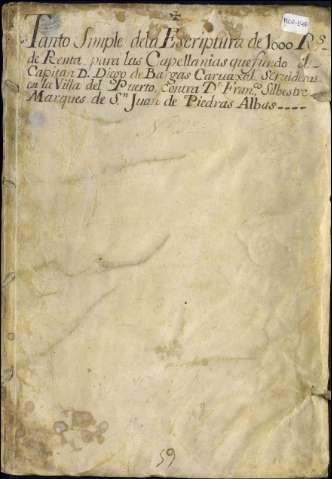 Tanto Simple dela Escriptura de 1000 R.s
de Renta para las Capellanias que fundo el
Capitan D. Diego de Bargas Caruaxal, Seruideras
en la Villa del Puerto, contra D.n Fran.co Silbestre
Marques de S.n Juan de Piedras Albas ----
59